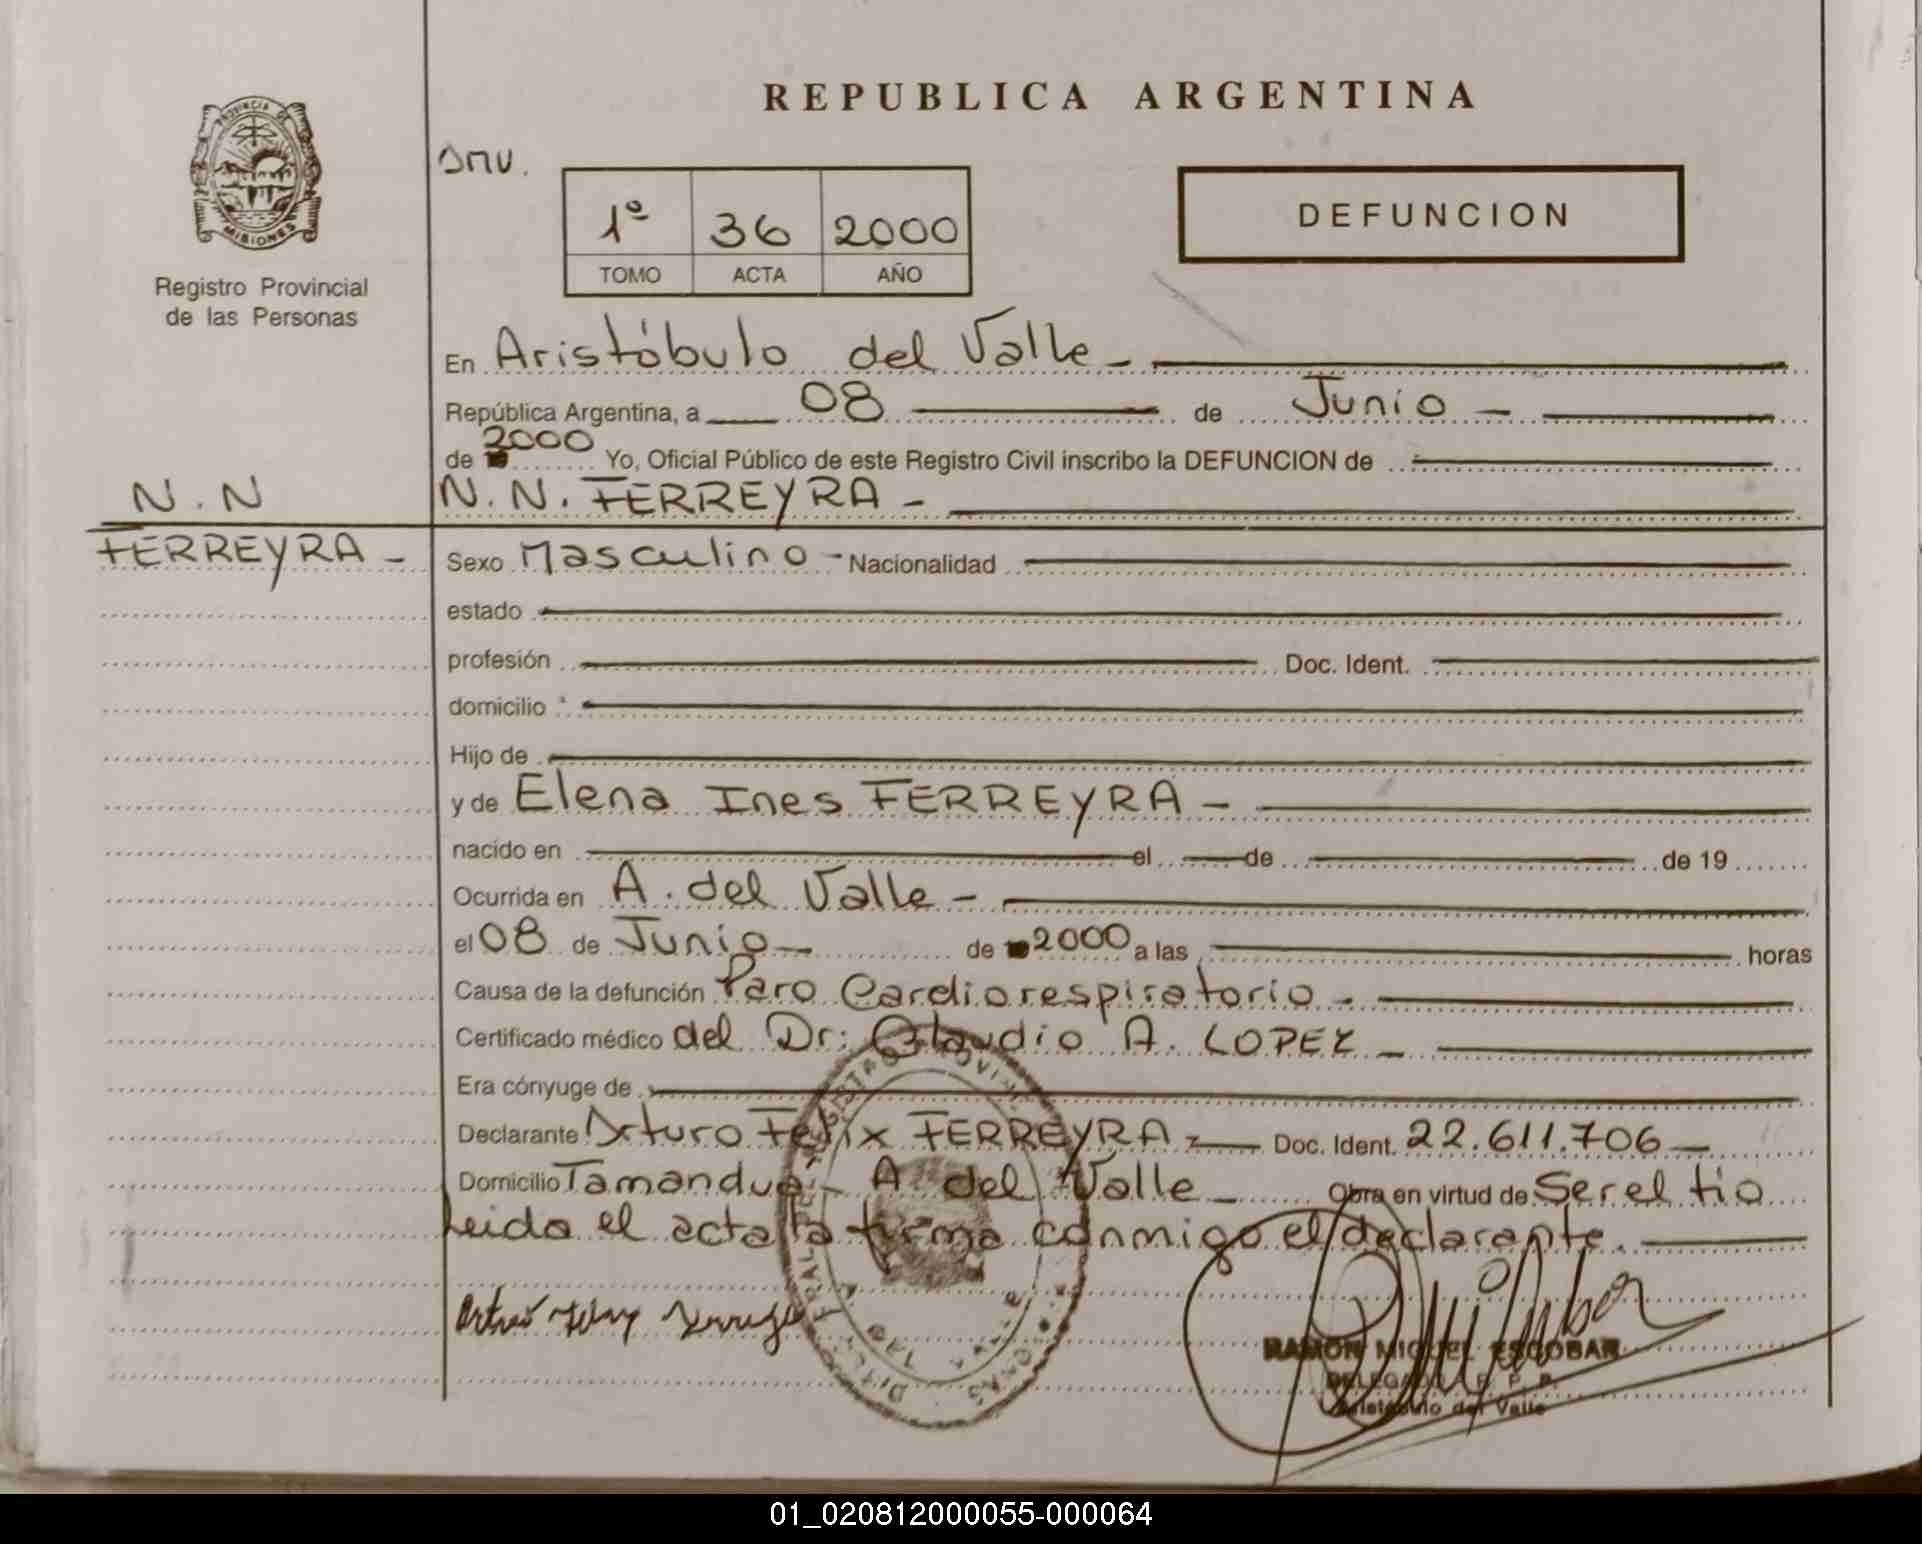 REPUBLICA ARGENTINA
PROVINCIA DE
MISIONES
Registro Provincial
de las Personas
JMV.
1º 36 2000
TOMO ACTA AÑO
DEFUNCION
En Aristóbulo del Valle -
República Argentina, a 08 de Junio -
de 2000 Yo, Oficial Público de este Registro Civil inscribo la DEFUNCION de
N.N
FERREYRA -
N.N. FERREYRA -
Sexo Masculino - Nacionalidad
estado
profesión Doc. Ident.
domicilio
Hijo de
y de Elena Ines FERREYRA -
nacido en el de de 19
Ocurrida en A. del Valle -
el 08 de Junio - de 2000 a las horas
Causa de la defunción Paro Cardiorespiratorio -
Certificado médico del Dr: Claudio A. LOPEZ -
Era cónyuge de
Declarante Arturo Felix FERREYRA - Doc. Ident. 22.611.706 -
Domicilio Tamandua - A del Valle - Obra en virtud de Ser el tio
Leida el acta la firma conmigo el declarante.
RAMON MIGUEL ESCOBAR
DELEGADO R. P. P.
Aristóbulo del Valle
01_020812000055-000064